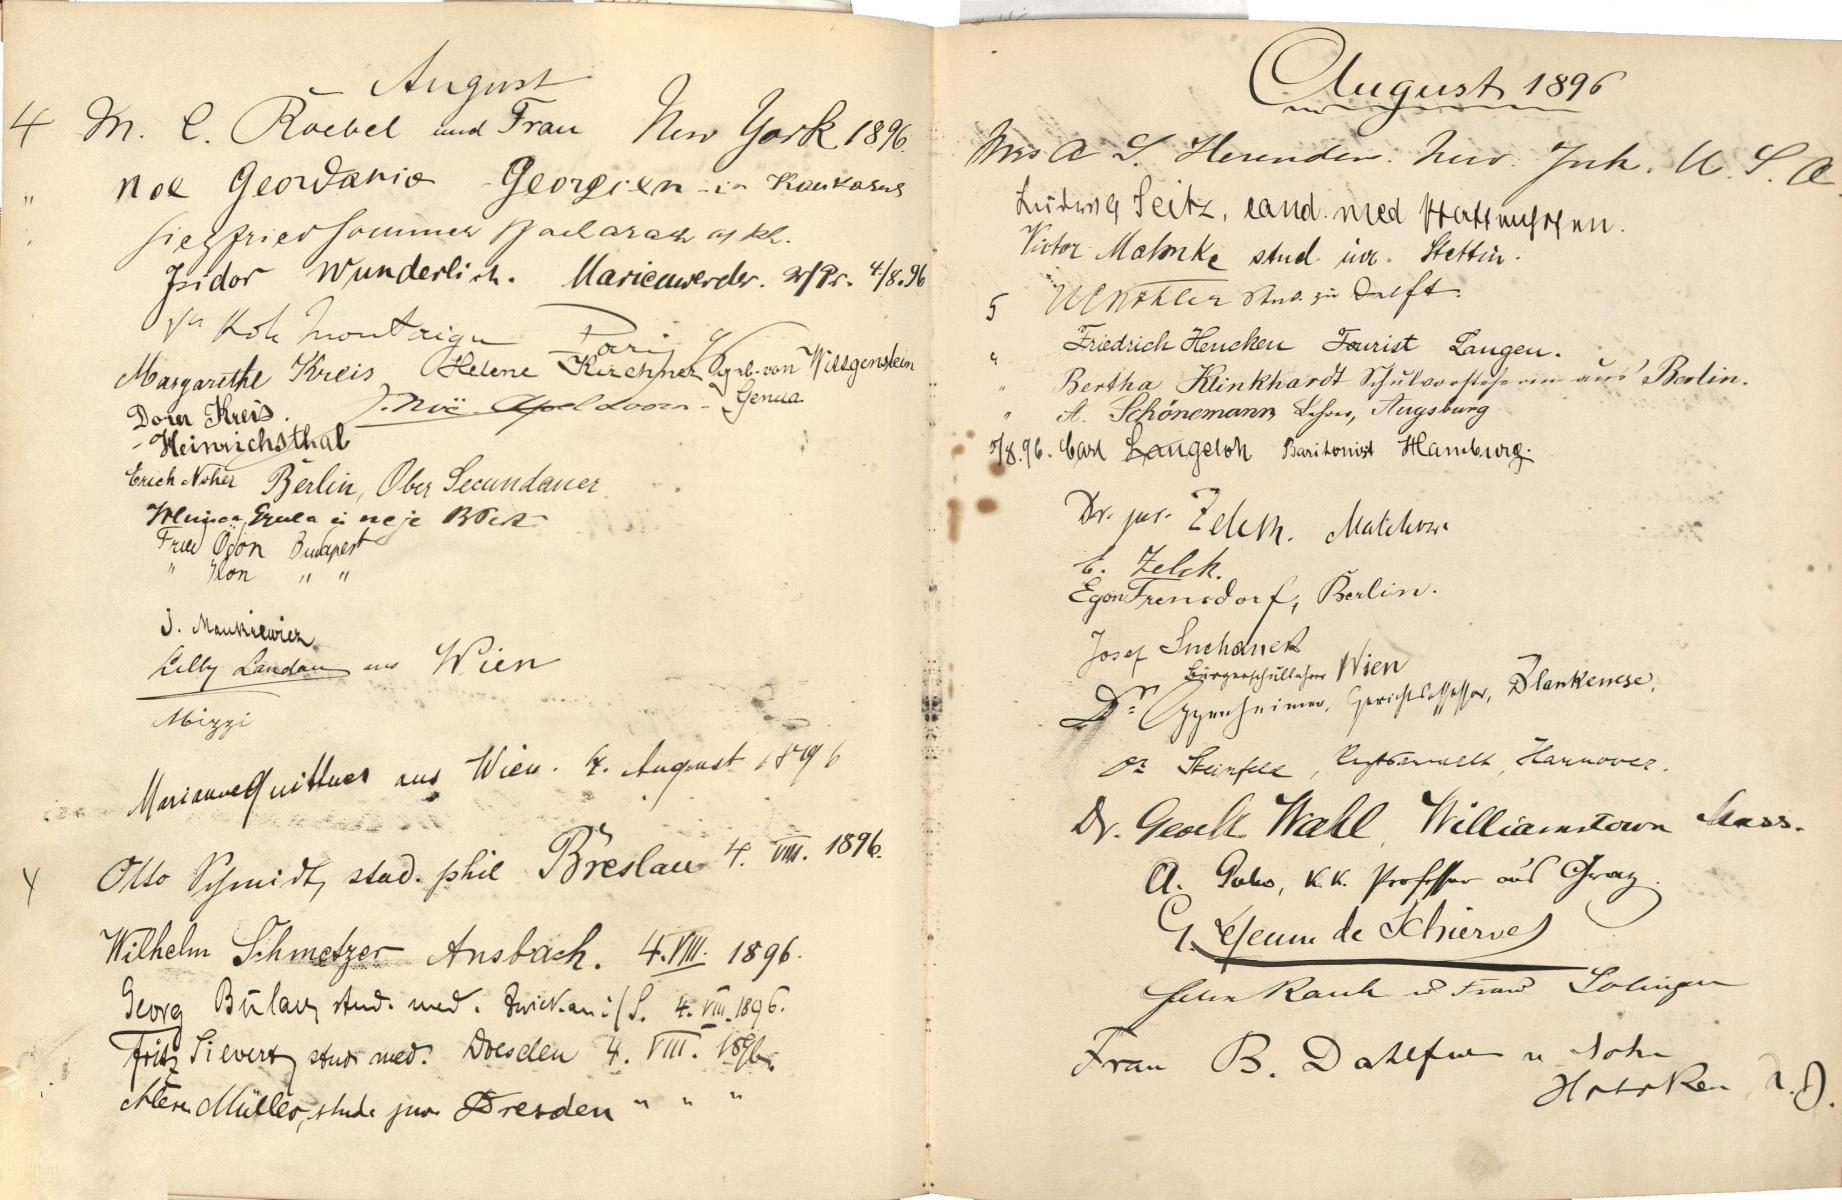 August
4 M. C. Roebel und Frau New York 1896.
" Noe Geordania - Georgien - in Kaukasus
Siegfried Sommer Bacharach a/Rh.
Isidor Wunderlich. Marienwerder. W/Pr. 4/8.96
Paris
Margarethe Kreis Helene Kirchner geb. von Wittgenstein
Dorer Kreis. J. Noë - Apeldoorn - Genua
- Heinrichsthal
Erich Noher Berlin, Ober Secundaner
Fried Ödön Budapest
" Ilon " "
J. Mankiewicz
Lilly Landau aus Wien
Mizzi
Marianne Quittner aus Wien. 4. August 1896
Otto Schmidt, stud. phil Breslau 4. VIII. 1896.
Wilhelm Schmetzer Ansbach. 4. VIII. 1896.
Georg Bülau, stud. med. Zwickau i/S. 4. VIII. 1896.
Fritz Sievert, stud. med. Dresden 4. VIII. 1896.
Müller, stud. jur. Dresden " " "
August 1896
Mrs A S. Herenden. New. Jrk. U. S. A
Ludwig Seitz, cand. med Pfaffenhofen.
Victor Mahnke stud. iur. Stettin.
5 Köhler stud. zu Delft.
" Friedrich Hencken Tourist Langen.
" Bertha Klinkhardt Schulvorsteherin aus Berlin.
" A. Schönemann, Lehrer, Augsburg
5/8.96. Carl Langeloh Baritonist Hamburg.
Dr. jur. Zelch. Malchow
E. Zelck.
Egon Frensdorf, Berlin.
Josef Suchanek
Bürgerschullehrer Wien
Dr. Oppenheimer, Gerichtsassessor, Blankenese.
Dr Steinfeld, Rechtsanwalt, Hannover.
Dr. Georg Wahl, Williamstown Mass.
A. k.k. Professor aus Graz.
G. Lejeune de Schiervel
Rauh u Frau Solingen
Frau B. Dahlfues u Sohn
Hoboken, N.J.